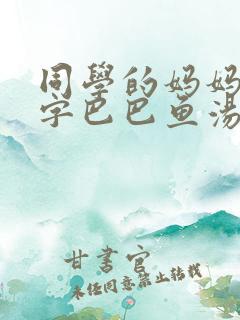 同學的妈妈
字巴巴鱼汤
甘書官
未任同意禁止转载